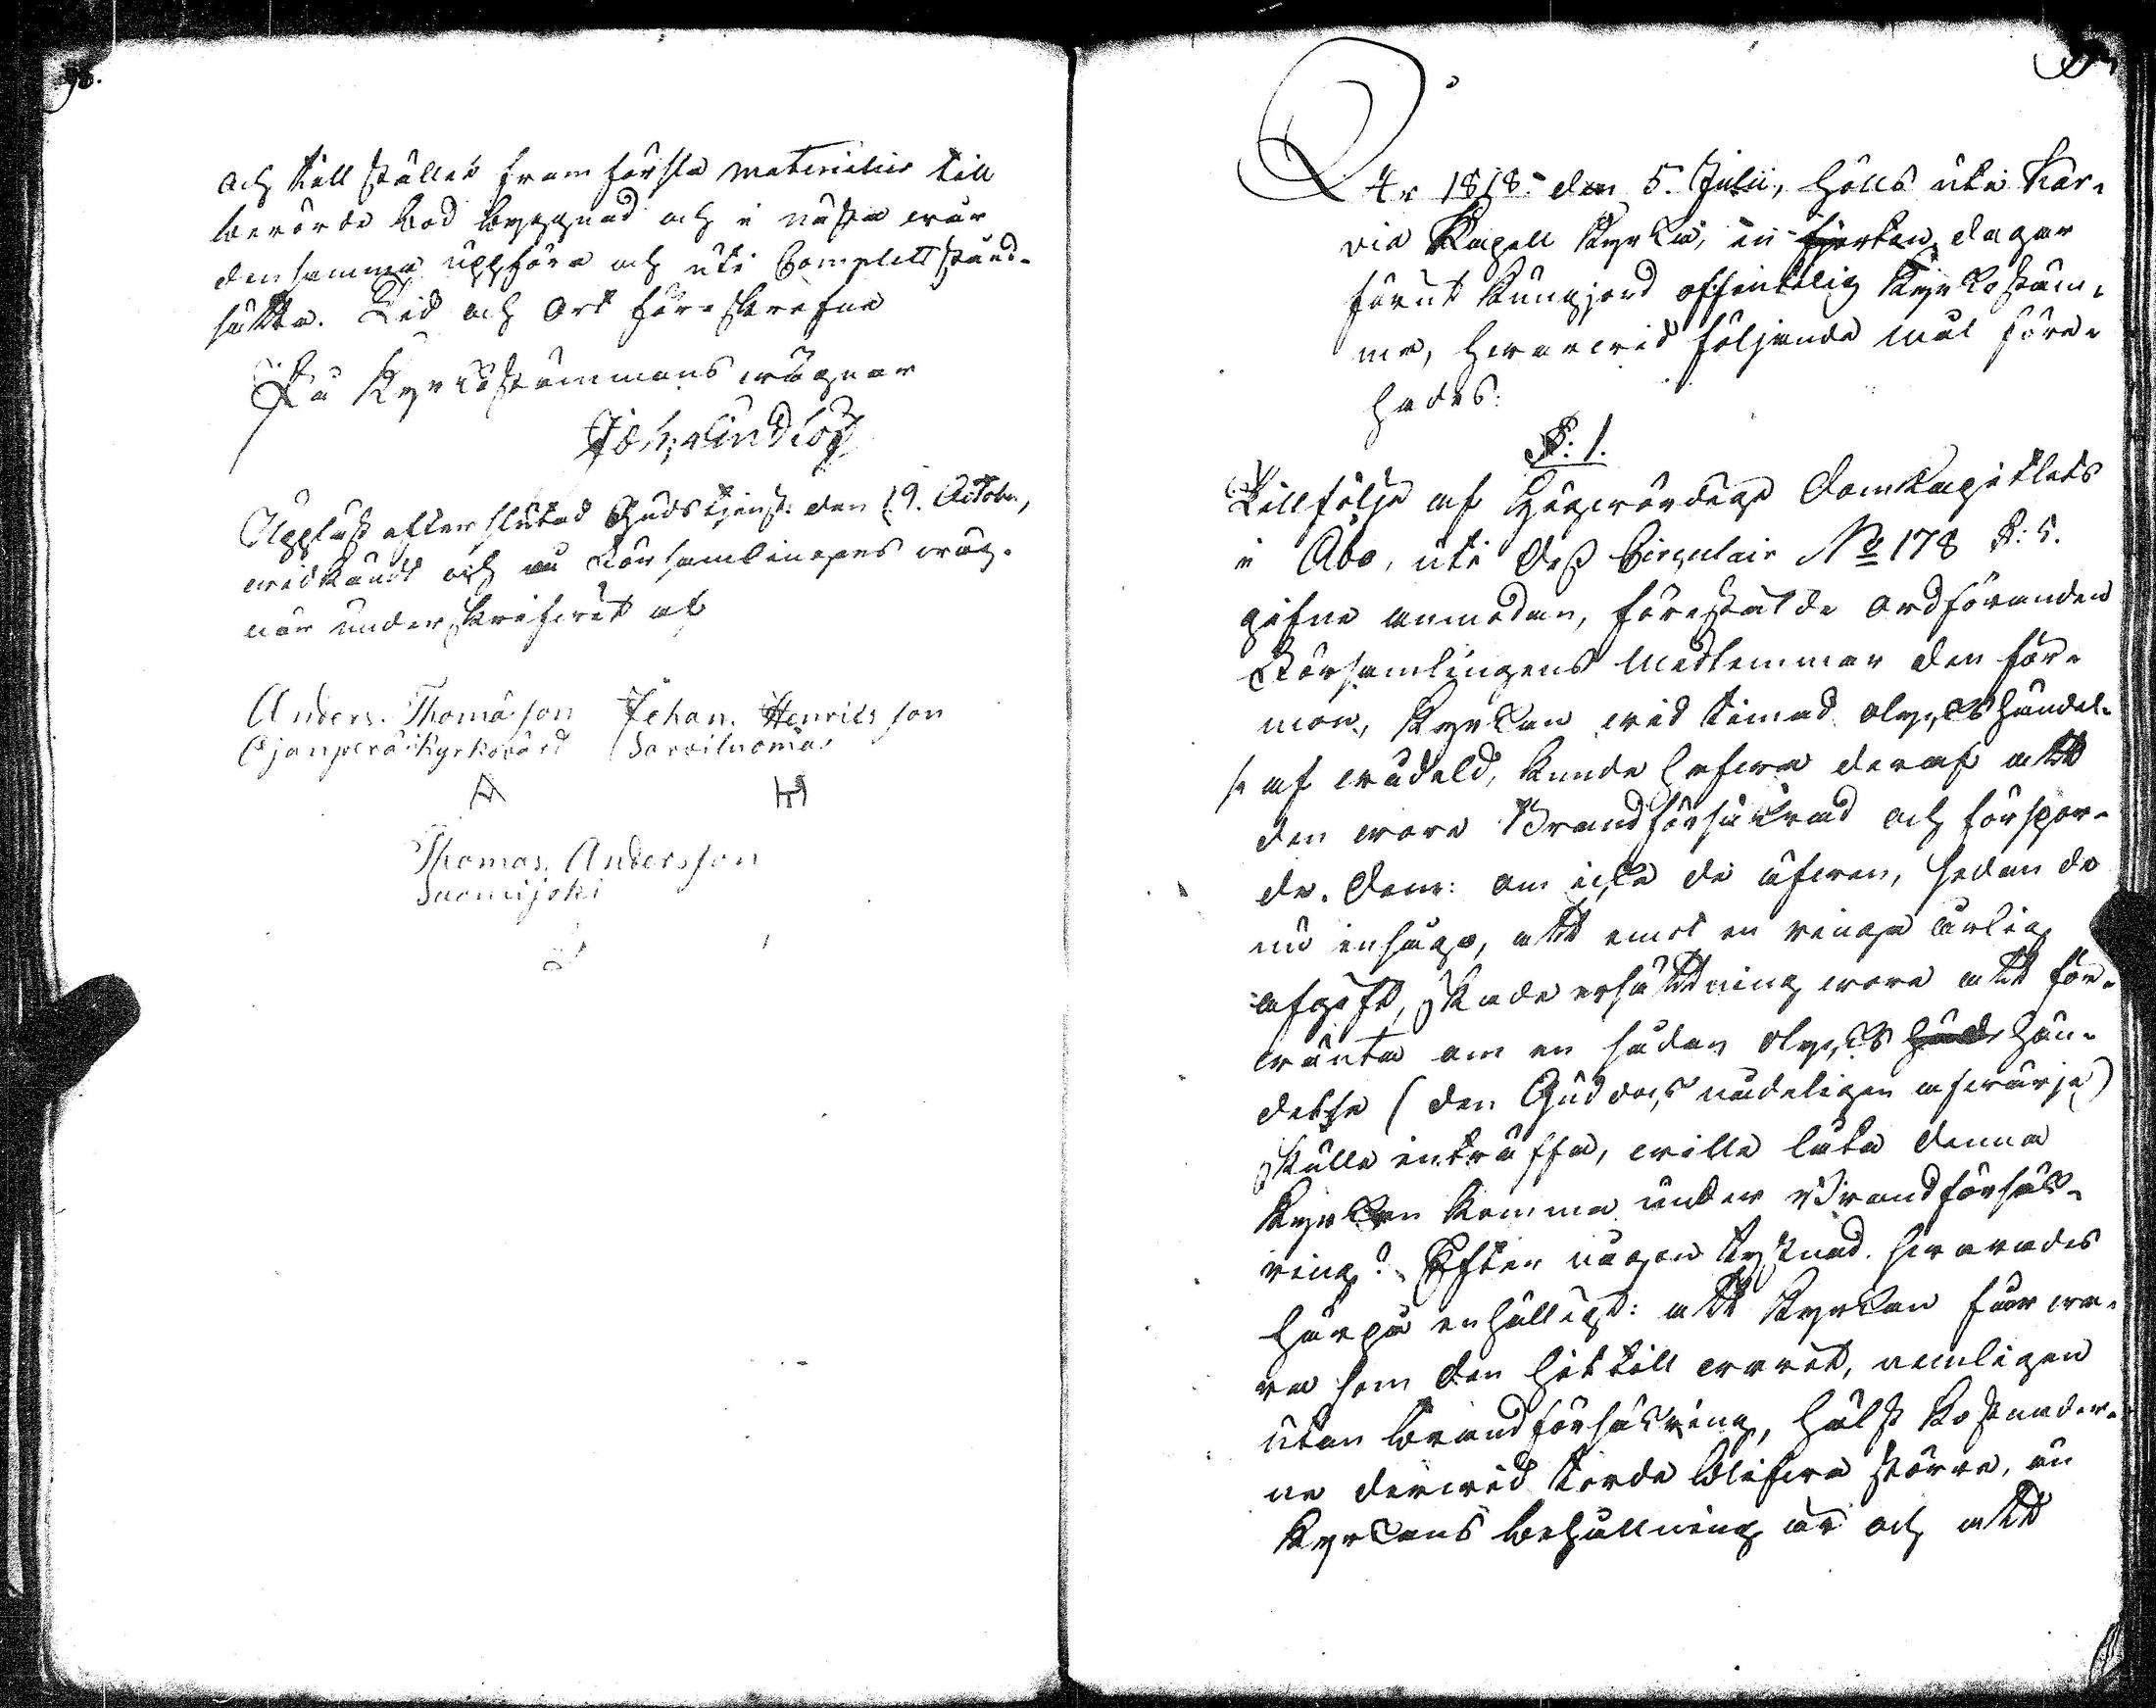 98.
och till stället framförsla materialier till
berörde bod byggnad och i nästa wår
densamma uppföra och uti Complett stånd
sätta. Tid och Ort föreskrefne
På Kyrkostämmans wägnar
Joh: Lindlöf
Uppläst efter slutad Gudstjenst den 19. October,
widkändt och å Församlingens wäg-
nar underskrifwit af
Anders Thomasson Johan Henriksson
Ojanperä Kyrkowärd Sarwiluoma
A HH
Thomas Andersson
Luomijoki
År 1818. den 5. Julii, hölls uti Kar-
via Kapell Kyrka, en fjorton dagar
förut kungjord offentelig Kyrkostäm-
ma, hwarwid följande mål före-
hades:
§: 1.
Tillfölje af Högwördige Domkapitlets
i Åbo, uti dess Circulair No 178 §: 5.
gifne anmodan, förestälde Ordföranden
Församlingens Medlemmar den för-
mon, Kyrkan wid timad olyckshändel-
se af wådeld, kunde hafwa deraf att
den wore Brandförsäkrad och förspor-
de dem: om icke de äfwen, sedan de
nu insågo, att emot en ringa årlig
afgift, skadeersättning wore att för-
wänta om en sådan olycks händ hän-
delse (den Gud dock nådeligen afwärje)
skulle inträffa, wille låta denna
Kyrkan komma under Brandförsäk-
ring? Efter någon tystnad swarades
härpå enhälligt: att Kyrkan får wa-
ra som den hittill warit, nemligen
utan brandförsäkring, hälst kostnader-
ne derwid torde blifwa större, än
Kyrkans behållning är och att